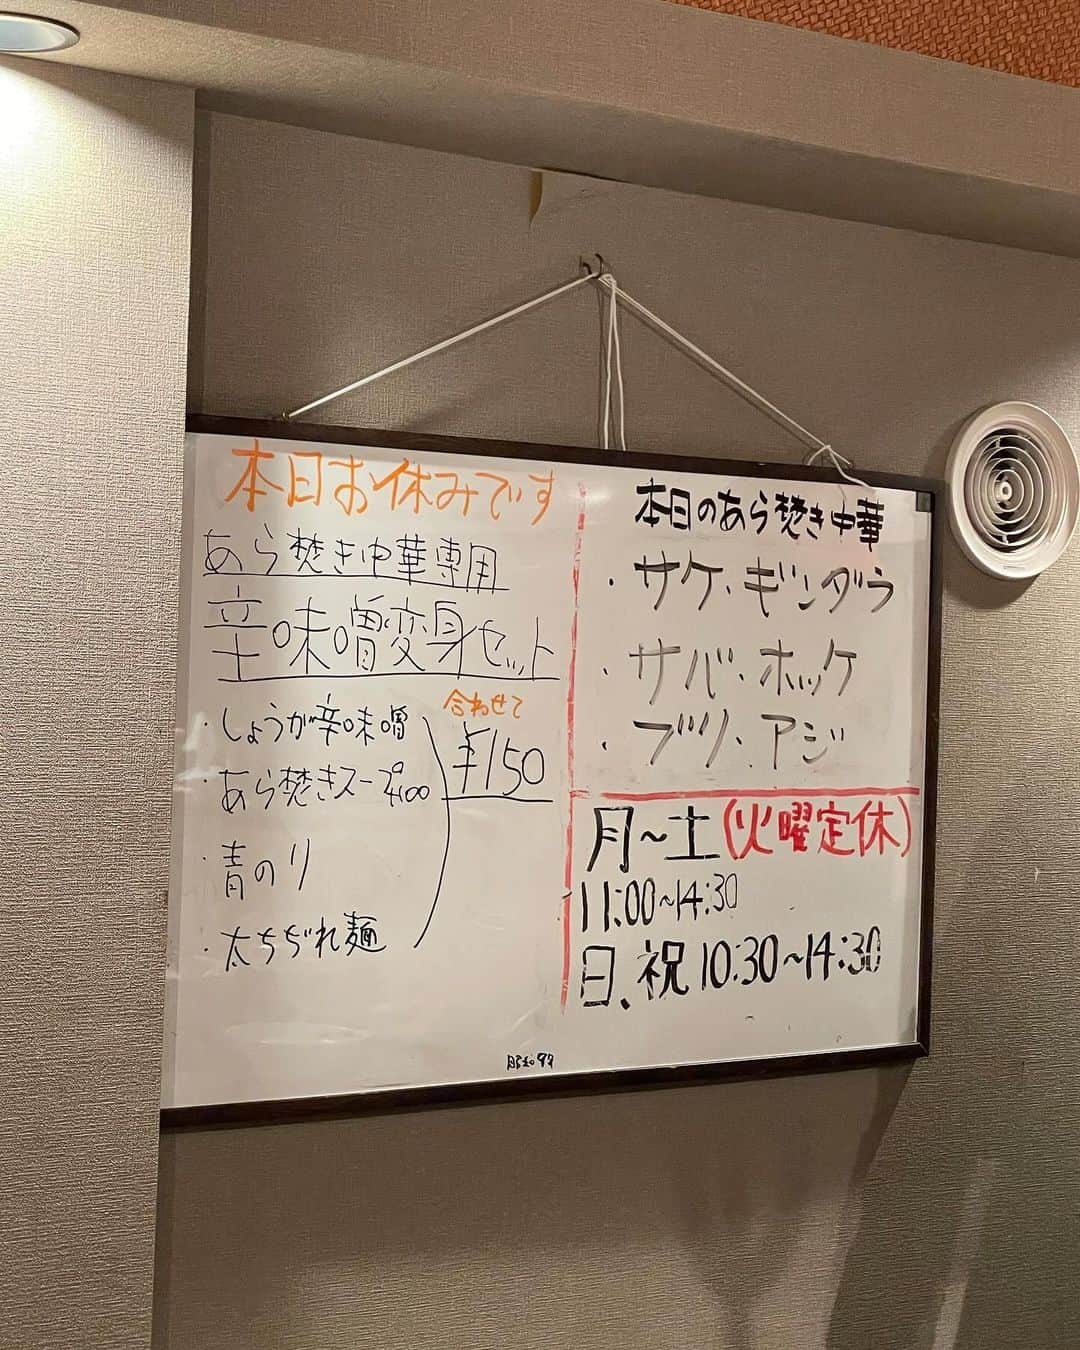 本日お休みです
あら焚き中華専用
辛味噌変身セット
・しょうが辛味噌
・あら焚きスープ
・青のり
・太ちぢれ麺
合わせて
¥150
本日のあら焚き中華
・サケ・ギンダラ
・サバ・ホッケ
・ブリ・アジ
月～土(火曜定休)
11:00～14:30
日、祝 10:30～14:30